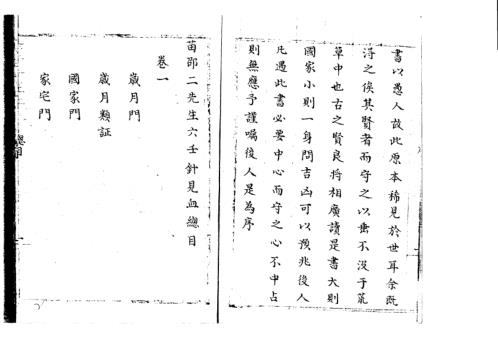 書以愚人故此原本稀見於世耳余既
得之俟其賢者而守之以垂不没于荒
草中也古之賢良將相廣讀是書大則
國家小則一身問吉凶可以預兆後人
凡遇此書必要中心而守之心不中占
則無應予謹囑後人是為序
苗郎二先生六壬針見血總目
卷一
歲月門
歲月類証
國家門
家宅門
總目